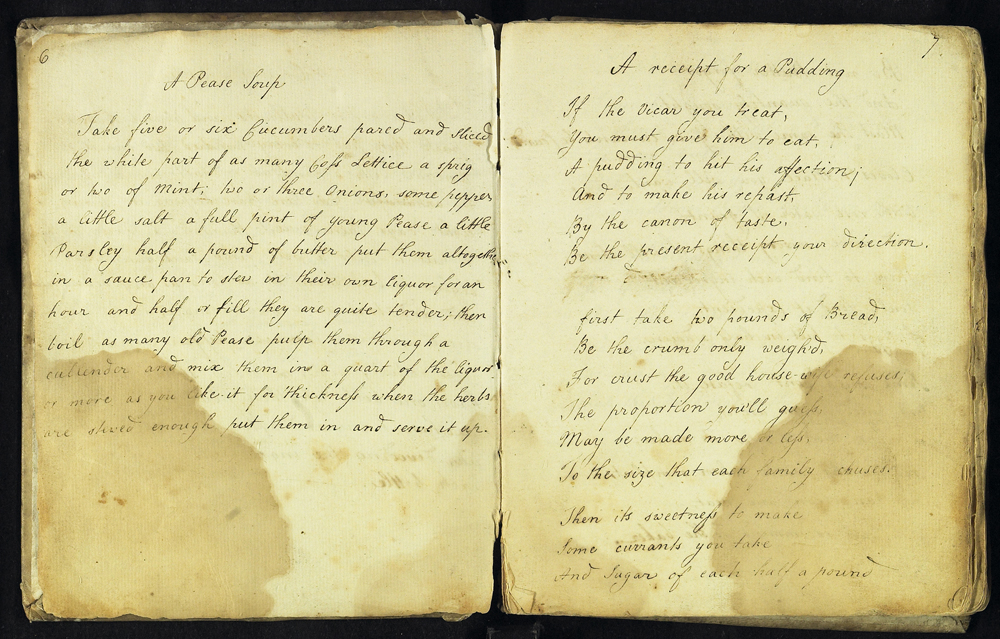 6
A Pease Soup
Take five or six Cucumbers pared and sliced
the white part of as many Coss Lettice a sprig
or two of mint; two or three onions, some pepper
a little salt a full pint of young Pease a little
Parsley half a pound of butter put them altogether
in a sauce pan to stew in their own liquor for an
hour and half or till they are quite tender; then
boil as many old Pease pulp them through a
cullender and mix them in a quart of the liquor
or more as you like it for thickness when the herbs
are stwed enough put them in and serve it up.
7
A receipt for a Pudding
If the Vicar you treat,
You must give him to eat,
A pudding to hit his affection;
And to make his repast,
By the canon of taste,
Be the present receipt your direction.
first take two pounds of Bread,
Be the crumb only weigh'd,
For crust the good house-wife refuses,
The proportion you'll guess,
May be made more or less,
To the size that each family chuses.
Then its sweetness to make
Some currants you take
And Sugar of each half a pound